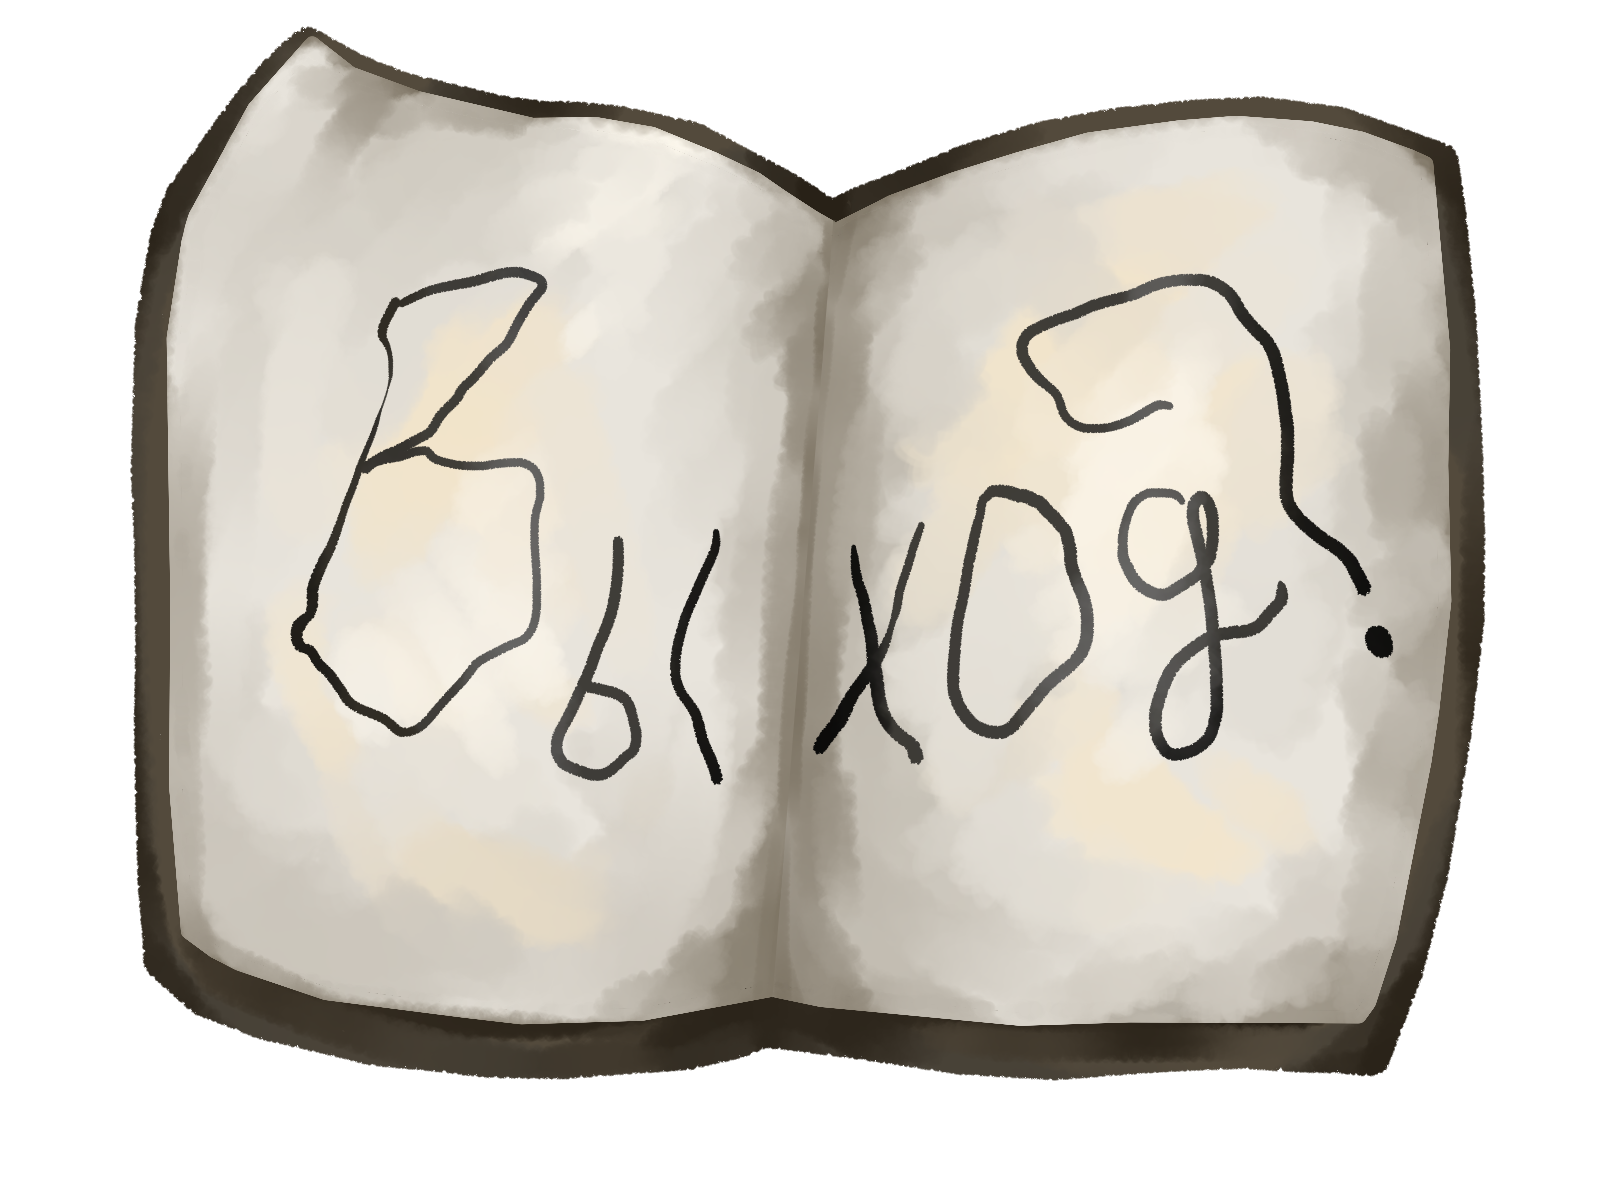 Выход?